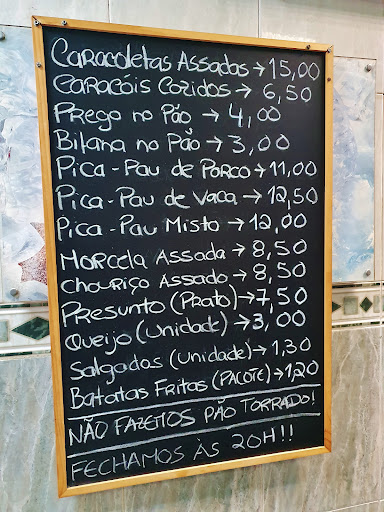 Caracoletas Assadas → 15,00
Caracóis Cozidos → 6,50
Prego no Pão → 4,00
Bifana no Pão → 3,00
Pica-Pau de Porco → 11,00
Pica-Pau de Vaca → 12,50
Pica-Pau Misto → 12,00
Morcela Assada → 8,50
Chouriço Assado → 8,50
Presunto (Prato) → 7,50
Queijo (Unidade) → 3,00
Salgados (Unidade) → 1,30
Batatas Fritas (Pacote) → 1,20
NÃO FAZEMOS PÃO TORRADO!
FECHAMOS ÀS 20H!!